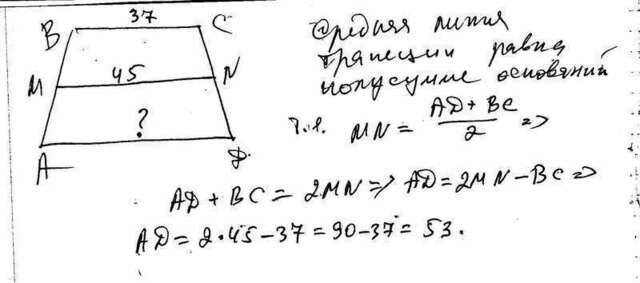 37
B C
M 45 N
?
A D
Средняя линия
трапеции равна
полусумме оснований
т.е. MN = (AD + BC)/2 =>
AD + BC = 2MN => AD = 2MN - BC =>
AD = 2·45 - 37 = 90 - 37 = 53.